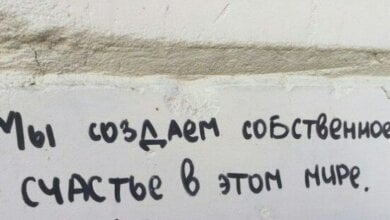 Мы создаем собственное
счастье в этом мире.